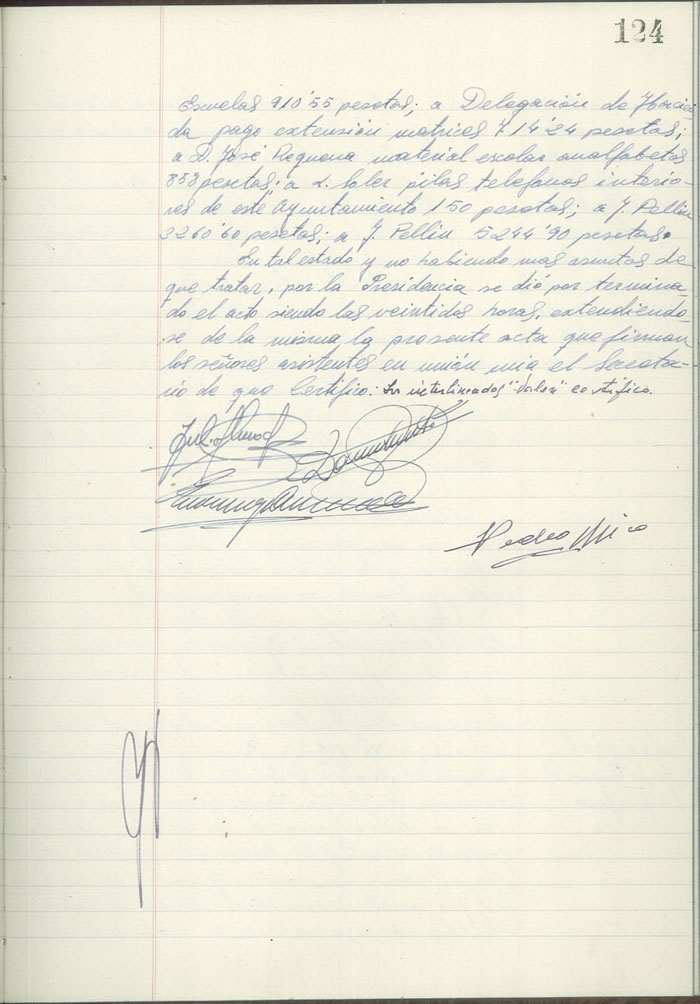 124
Escuelas 910'55 pesetas; a Delegación de Hacien-
da pago extensión matrices 714'24 pesetas;
a D. José Requena material escolar analfabetos
858 pesetas; a L. Soler pilas telefonos interio-
res de este Ayuntamiento 150 pesetas; a J. Pellin
3260'60 pesetas; a J. Pellin 5244'90 pesetas.
En tal estado y no habiendo mas asuntos de
que tratar, por la Presidencia se dió por termina-
do el acto siendo las veintidos horas, extendiendo-
se de la misma la presente acta que firman
los señores asistentes en unión mia el Secreta-
rio de que Certifico. Los interlineados "Valen" certifico.
Pedro Mico